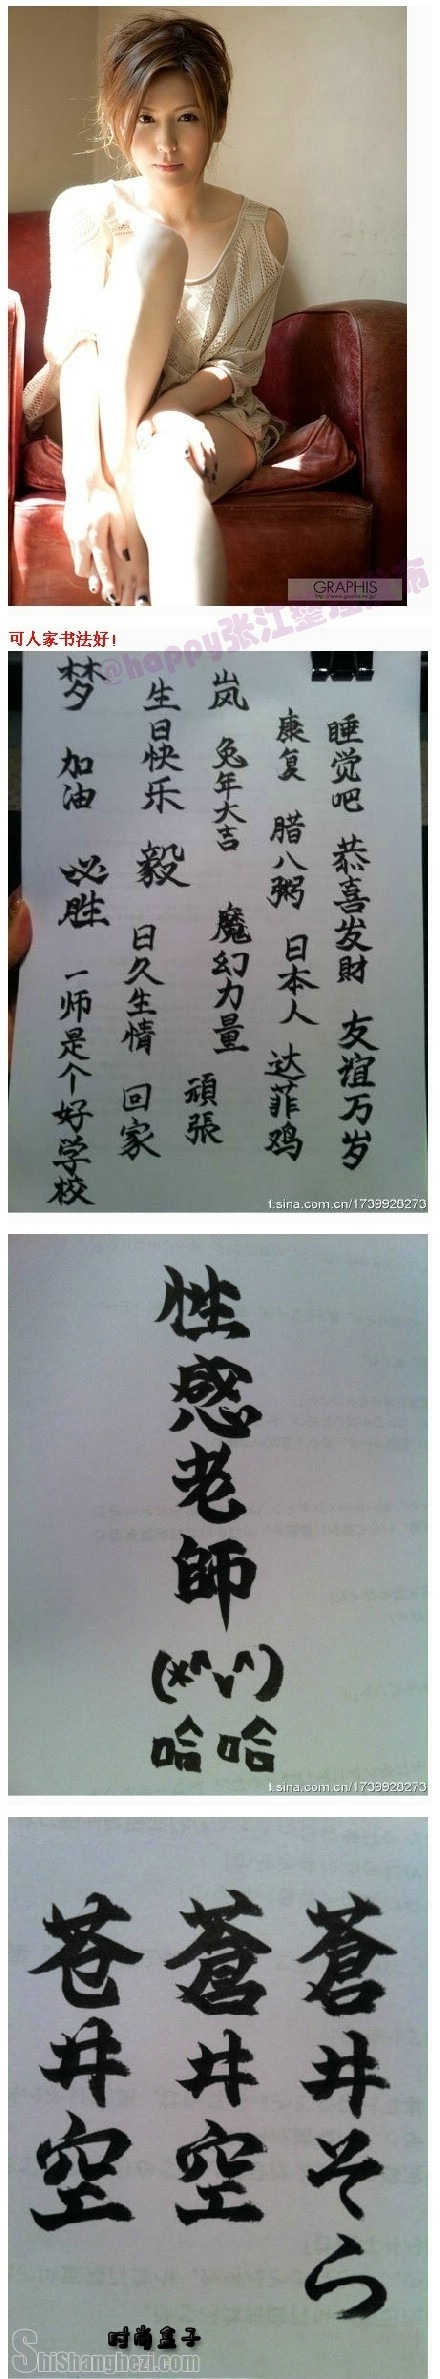 GRAPHIS
http://www.graphis.ne.jp/
可人家书法好!
@happy张江整理发布
睡觉吧 恭喜发财 友谊万岁
康复 腊八粥 日本人 达菲鸡
岚 兔年大吉 魔幻力量 頑張
生日快乐 毅 日久生情 回家
梦 加油 必胜 一师是个好学校
t.sina.com.cn/1739928273
性感老師
(*^v^)
哈哈
t.sina.com.cn/1739928273
蒼井そら
蒼井空
苍井空
时尚盒子
ShiShanghezi.com